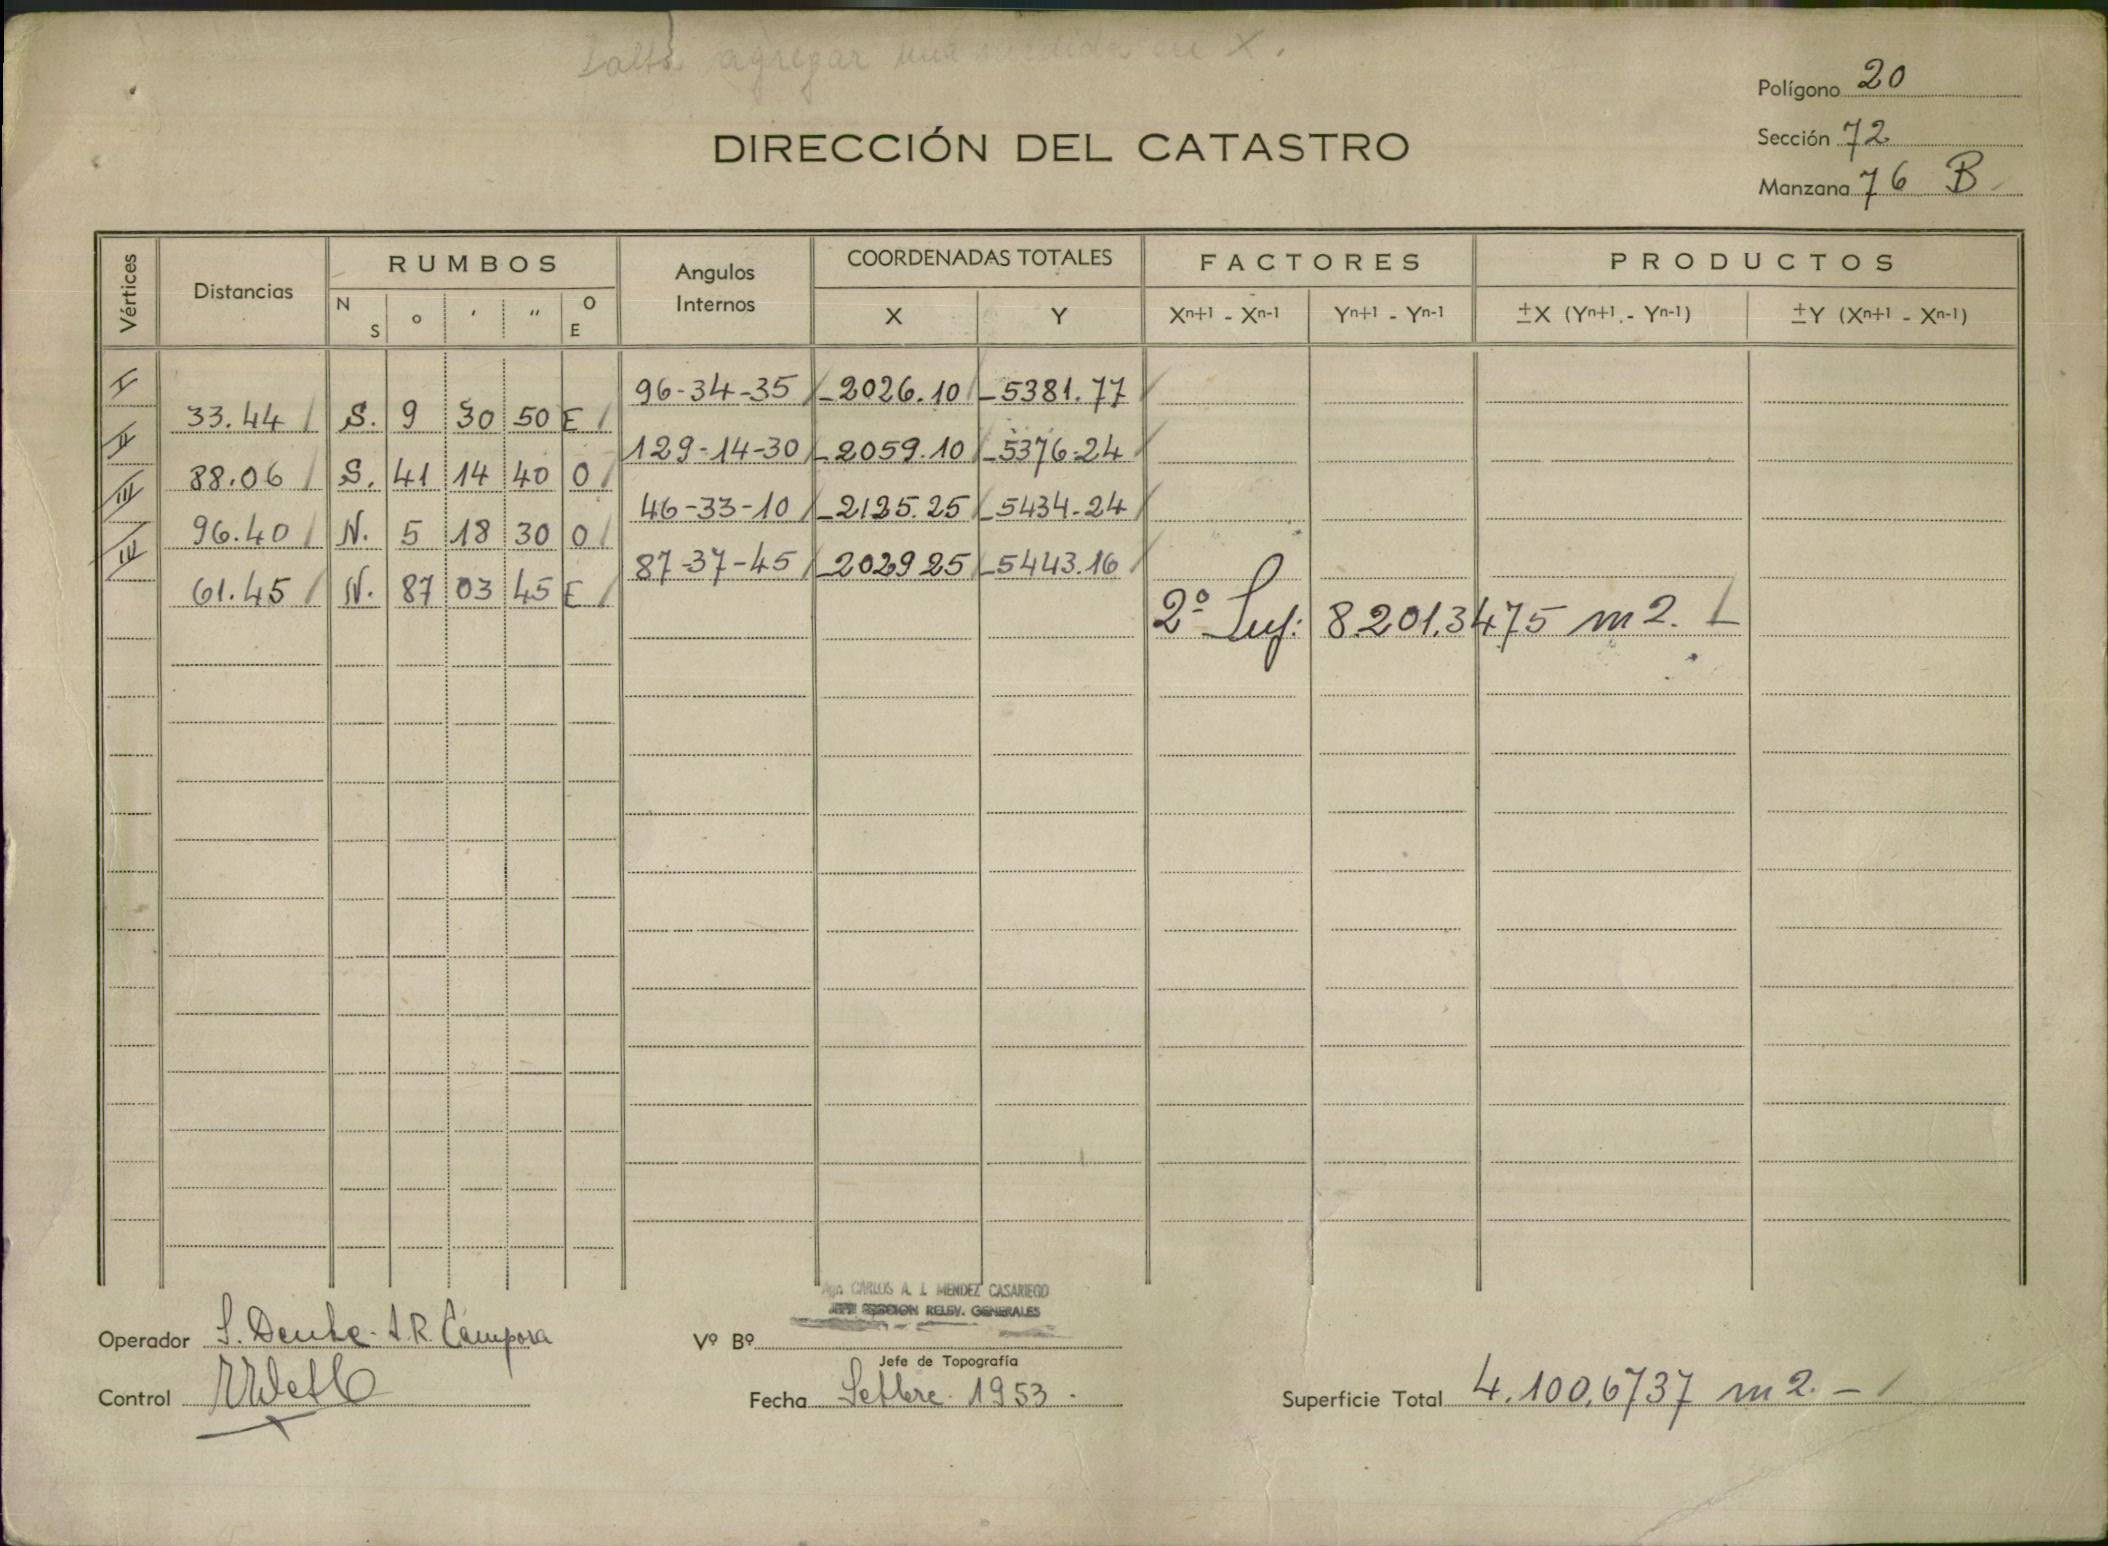 Falta agregar una medida en X.
Polígono 20
Sección 72
Manzana 76 B
DIRECCIÓN DEL CATASTRO
Vértices
Distancias
RUMBOS
N S
°
'
"
O E
Angulos Internos
COORDENADAS TOTALES
X
Y
FACTORES
Xn+1 - Xn-1
Yn+1 - Yn-1
PRODUCTOS
±X (Yn+1 - Yn-1)
±Y (Xn+1 - Xn-1)
I 96-34-35 -2026.10 -5381.77
33.44 S. 9 30 50 E
II 129-14-30 -2059.10 -5376.24
88.06 S. 41 14 40 O
III 46-33-10 -2125.25 -5434.24
96.40 N. 5 18 30 O
IV 87-37-45 -2029 25 -5443.16
61.45 N. 87 03 45 E
2º Sup: 8.201.3475 m2.
Agr. CARLOS A. I. MENDEZ CASARIEGO
JEFE SECCION RELEV. GENERALES
Operador S. Deube - A.R. Campora
Vº Bº
Jefe de Topografía
Control
Fecha Setbre. 1953.
Superficie Total 4.100,6737 m2. -